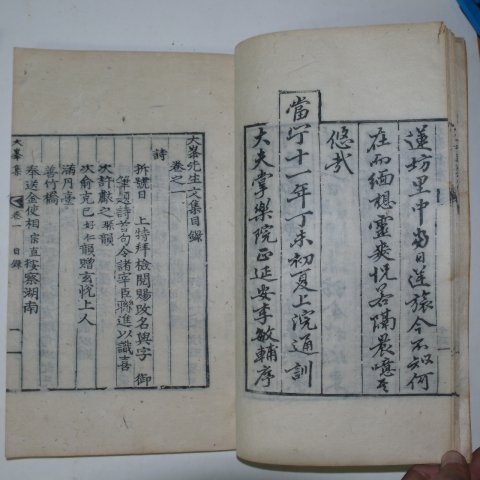 蓮坊里中當日逆旅令不知何
在而緬想靈爽怳若隔晨噫其
悠哉
當宁十一年丁未初夏上院通訓
大夫掌樂院正延安李敏輔序
大峯先生文集目錄
卷之一
詩
拆號日 上特拜檢閱賜改名與字 御
筆題詩首句令諸宰臣聯進以識喜
次許蘇之琛韻
次俞克己好仁韻贈玄悅上人
滿月臺
善竹橋
奉送金使相宗直按察湖南
大峯集 卷一 目錄 一